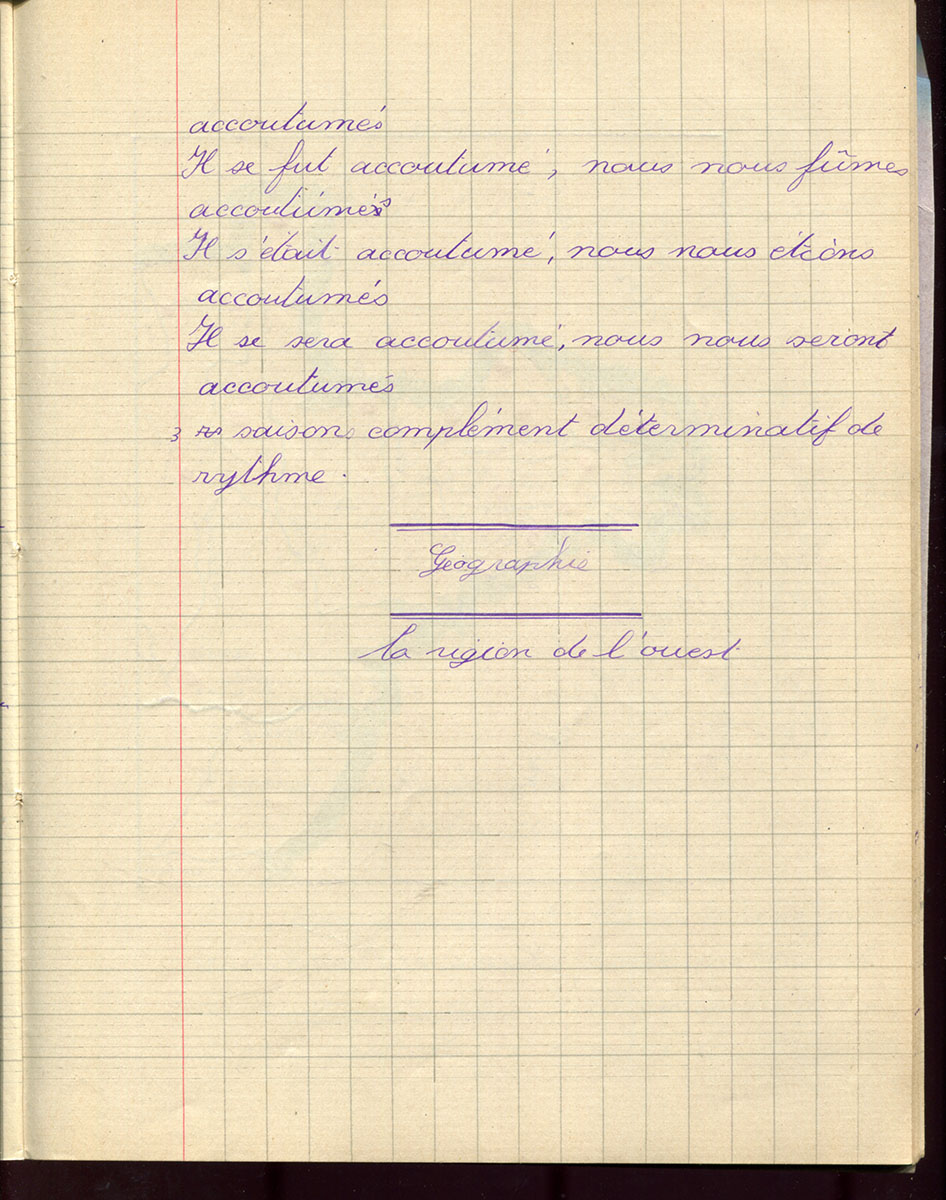 accoutumés
Il se fut accoutumé, nous nous fûmes
accoutumés
Il s'était accoutumé, nous nous étions
accoutumés
Il se sera accoutumé, nous nous seront
accoutumés
3 saisons complément déterminatif de
rythme.
Géographie
La région de l'ouest